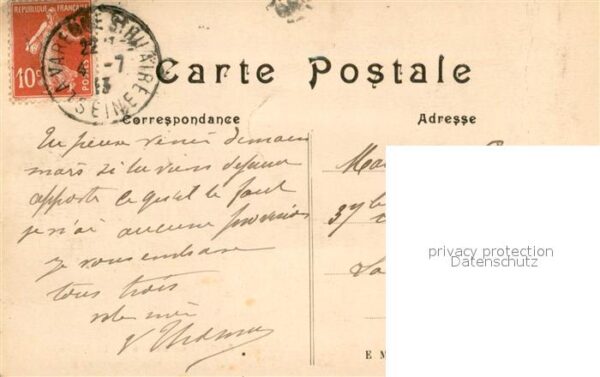 REPUBLIQUE FRANÇAISE
10c
POSTES
LA VARENNE ST HILAIRE
22
4 -7
13
SEINE
Carte Postale
Correspondance
Adresse
Tu peux venir demain
mais si tu viens dejeuner
apporte ce qu'il te faut
je n'ai aucune provision
Je vous embrasse
tous trois
37
privacy protection
Datenschutz
E M